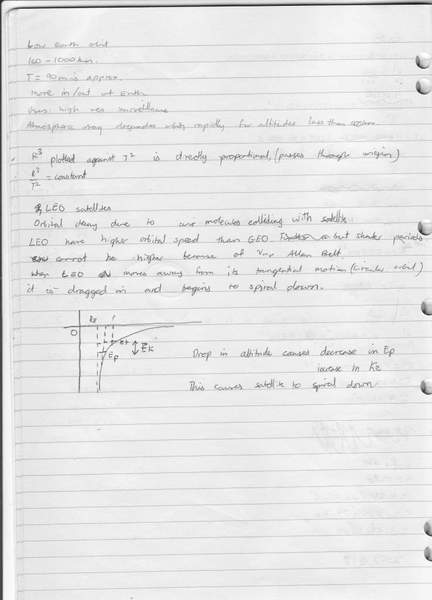 Low Earth orbit
160 - 1000km.
T = 90 mins approx.
more in/out at Earth
Uses: high res surveillance
Atmosphere drag degrades orbits rapidly for altitudes less than
R³ plotted against T² is directly proportional, (passes through origin)
R³/T² = constant
LEO satellites
Orbital decay due to molecules colliding with satellite
LEO have higher orbital speed than GEO but shorter periods
cannot be higher because of Van Allen Belt
when LEO moves away from its tangential motion (circular orbit)
it is dragged in and begins to spiral down.
O r
Ep Ek
Drop in altitude causes decrease in Ep
increase in Ke
This causes satellite to spiral down